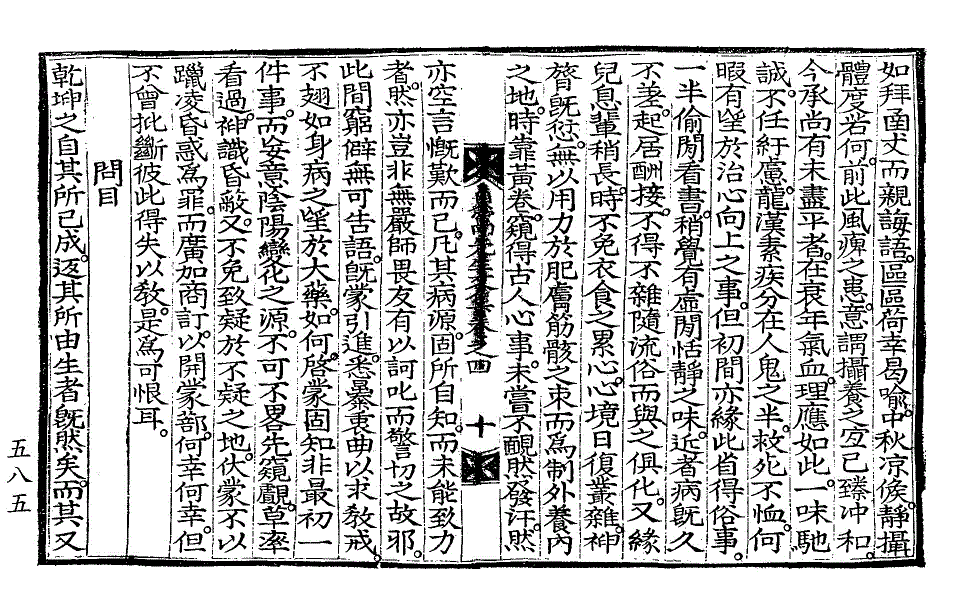 如拜函丈而親誨語。區區荷幸曷喩。中秋凉候。靜攝
體度若何。前此風痺之患。意謂攝養之宜已臻冲和。
今承尙有未盡平者。在衰年氣血。理應如此。一味馳
誠。不任紆慮。龍漢素疾分在人鬼之半。救死不恤。何
暇有望於治心向上之事。但初間亦緣此省得俗事。
一半偷閒看書。稍覺有虛閒恬靜之味。近者病旣久
不差。起居酬接。不得不雜隨流俗而與之俱化。又緣
兒息輩稍長。時不免衣食之累心。心境日復叢雜。神
膂旣愆。無以用力於肥膚筋骸之束而爲制外養內
之地。時靠黃卷。窺得古人心事。未嘗不靦然發汗。然
亦空言慨歎而已。凡其病源。固所自知。而未能致力
者。然亦豈非無嚴師畏友有以訶叱而警切之故耶。
此間窮僻無可告語。旣蒙引進。悉暴衷曲以求敎戒。
不翅如身病之望於大藥。如何。啓蒙固知非最初一
件事。而妄意陰陽變化之源。不可不畧先窺覰。草率
看過。神識昏蔽。又不免致疑於不疑之地。伏蒙不以
躐凌昏惑爲罪。而廣加商訂。以開蒙蔀。何幸何幸。但
不曾批斷彼此得失以敎。是爲可恨耳。
問目
乾坤之自其所已成。返其所由生者旣然矣。而其又
之四
十
五八五